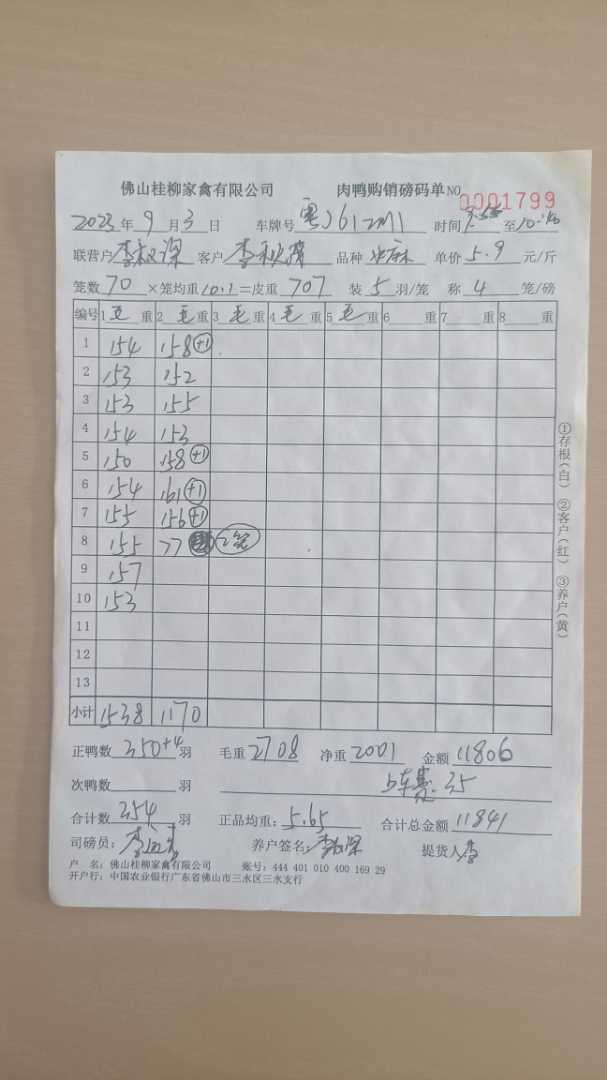 佛山桂柳家禽有限公司 肉鸭购销磅码单 NO 0001799
2023年9月3日 车牌号 粤J612M1 时间 至10:
联营户 李 深 客户 李秋 品种 麻 单价5.9元/斤
笼数70×笼均重10.1=皮重707 装5羽/笼 称4笼/磅
编号 1 毛 重 2 毛 重 3 毛 重 4 毛 重 5 毛 重 6 重 7 重 8 重
1 154 158 +1
2 153 152
3 153 155
4 154 153
5 150 158 +1
6 154 161 +1
7 155 156 +1
8 155 77 2笼
9 157
10 153
11
12
13
小计 1538 1170
正鸭数350+4羽 毛重2708 净重2001 金额11806
次鸭数 羽 上车费.35
合计数354羽 正品均重:5.65 合计总金额11841
司磅员:李 养户签名:李 深 提货人 李
户 名:佛山桂柳家禽有限公司 账号:444 401 010 400 169 29
开户行:中国农业银行广东省佛山市三水区三水支行
①存根(白) ②客户(红) ③养户(黄)